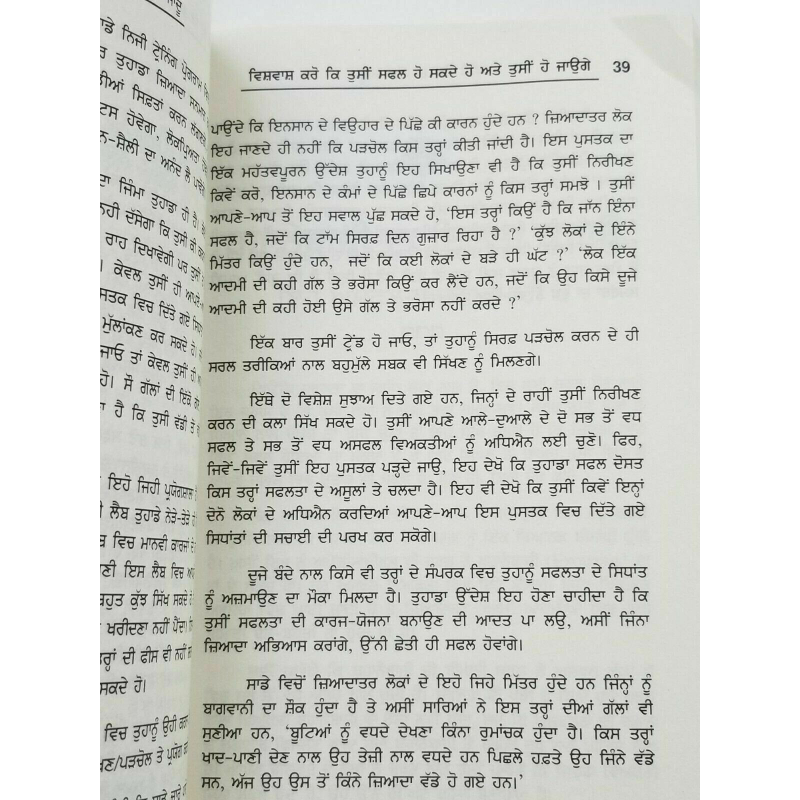 ਾਡੇ ਨਿਜੀ ਟ੍ਰੇਨਿੰਗ ਪ੍ਰੋਗਰਾਮ
ਤੁਹਾਡਾ ਜ਼ਿਆਦਾ ਸਨਮਾਨ
ੀਆਂ ਸਿਫ਼ਤਾਂ ਕਰਨ
ਟਸ ਹੋਵੇਗਾ, ਲੋਕਪ੍ਰਿਅਤਾ
ਨ-ਸ਼ੈਲੀ ਦਾ ਅਨੰਦ ਲੈ
ਦਾ ਜਿੰਮਾ ਤੁਹਾਡਾ ਹੀ ਹੈ।
ਨਹੀ ਦੱਸੇਗਾ ਕਿ ਤੁਸੀਂ ਕੀ
ਰਾਹ ਦਿਖਾਵੇਗੀ ਪਰ ਤੁਸੀਂ
। ਕੇਵਲ ਤੁਸੀਂ ਹੀ ਆਪਣੇ-
ਸਤਕ ਵਿਚ ਦਿੱਤੇ ਗਏ
ਮੁੱਲਾਂਕਣ ਕਰ ਸਕਦੇ ਹੋ।
ਜਾਓ ਤਾਂ ਕੇਵਲ ਤੁਸੀਂ ਹੀ
ਹੋ। ਸੌ ਗੱਲਾਂ ਦੀ ਇੱਕੋ
ਾ ਹੈ ਕਿ ਤੁਸੀ ਵੱਡੀ ਤੋਂ
ਇਹੋ ਜਿਹੀ ਪ੍ਰਯੋਗਸ਼ਾਲਾ
ੀ ਲੈਬ ਤੁਹਾਡੇ ਨੇੜੇ-ਤੇੜੇ
ਬ ਵਿਚ ਮਾਨਵੀ ਕਾਰਜਾਂ ਦੇ
ਣੀ ਇਸ ਲੈਬ ਵਿਚ ਆਪ
ਬਹੁਤ ਕੁੱਝ ਸਿੱਖ ਸਕਦੇ
ਖਰੀਦਣਾ ਨਹੀਂ ਪੈਂਦਾ।
ਰ੍ਹਾਂ ਦੀ ਫੀਸ ਵੀ ਨਹੀਂ
ਸਕਦੇ ਹੋ।
ਵਿਚ ਤੁਹਾਨੂੰ ਉਹੀ
ਖਣ/ਪੜਚੋਲ ਤੇ ਪ੍ਰਯੋਗ
ਵਿਸ਼ਵਾਸ਼ ਕਰੋ ਕਿ ਤੁਸੀਂ ਸਫਲ ਹੋ ਸਕਦੇ ਹੋ ਅਤੇ ਤੁਸੀਂ ਹੋ ਜਾਉਗੇ 39
ਪਾਉਂਦੇ ਕਿ ਇਨਸਾਨ ਦੇ ਵਿਉਹਾਰ ਦੇ ਪਿੱਛੇ ਕੀ ਕਾਰਨ ਹੁੰਦੇ ਹਨ ? ਜ਼ਿਆਦਾਤਰ ਲੋਕ
ਇਹ ਜਾਣਦੇ ਹੀ ਨਹੀਂ ਕਿ ਪੜਚੋਲ ਕਿਸ ਤਰ੍ਹਾਂ ਕੀਤੀ ਜਾਂਦੀ ਹੈ। ਇਸ ਪੁਸਤਕ ਦਾ
ਇੱਕ ਮਹੱਤਵਪੂਰਨ ਉੱਦੇਸ਼ ਤੁਹਾਨੂੰ ਇਹ ਸਿਖਾਉਣਾ ਵੀ ਹੈ ਕਿ ਤੁਸੀਂ ਨਿਰੀਖਣ
ਕਿਵੇਂ ਕਰੋ, ਇਨਸਾਨ ਦੇ ਕੰਮਾਂ ਦੇ ਪਿੱਛੇ ਛਿਪੇ ਕਾਰਨਾਂ ਨੂੰ ਕਿਸ ਤਰ੍ਹਾਂ ਸਮਝੋ । ਤੁਸੀਂ
ਆਪਣੇ-ਆਪ ਤੋਂ ਇਹ ਸਵਾਲ ਪੁੱਛ ਸਕਦੇ ਹੋ, ‘ਇਸ ਤਰ੍ਹਾਂ ਕਿਉਂ ਹੈ ਕਿ ਜਾੱਨ ਇੰਨਾ
ਸਫਲ ਹੈ, ਜਦੋਂ ਕਿ ਟਾੱਮ ਸਿਰਫ ਦਿਨ ਗੁਜ਼ਾਰ ਰਿਹਾ ਹੈ ?’ ‘ਕੁੱਝ ਲੋਕਾਂ ਦੇ ਇੰਨੇ
ਮਿੱਤਰ ਕਿਉਂ ਹੁੰਦੇ ਹਨ, ਜਦੋਂ ਕਿ ਕਈ ਲੋਕਾਂ ਦੇ ਬੜੇ ਹੀ ਘੱਟ ?’ ‘ਲੋਕ ਇੱਕ
ਆਦਮੀ ਦੀ ਕਹੀ ਗੱਲ ਤੇ ਭਰੋਸਾ ਕਿਉਂ ਕਰ ਲੈਂਦੇ ਹਨ, ਜਦੋਂ ਕਿ ਉਹ ਕਿਸੇ ਦੂਜੇ
ਆਦਮੀ ਦੀ ਕਹੀ ਹੋਈ ਉਸੇ ਗੱਲ ਤੇ ਭਰੋਸਾ ਨਹੀਂ ਕਰਦੇ ?’
ਇੱਕ ਬਾਰ ਤੁਸੀਂ ਟ੍ਰੇਂਡ ਹੋ ਜਾਓ, ਤਾਂ ਤੁਹਾਨੂੰ ਸਿਰਫ਼ ਪੜਚੋਲ ਕਰਨ ਦੇ ਹੀ
ਸਰਲ ਤਰੀਕਿਆਂ ਨਾਲ ਬਹੁਮੁੱਲੇ ਸਬਕ ਵੀ ਸਿੱਖਣ ਨੂੰ ਮਿਲਣਗੇ।
ਇੱਥੇ ਦੋ ਵਿਸ਼ੇਸ਼ ਸੁਝਾਅ ਦਿਤੇ ਗਏ ਹਨ, ਜਿਨ੍ਹਾਂ ਦੇ ਰਾਹੀਂ ਤੁਸੀਂ ਨਿਰੀਖਣ
ਕਰਨ ਦੀ ਕਲਾ ਸਿੱਖ ਸਕਦੇ ਹੋ। ਤੁਸੀਂ ਆਪਣੇ ਆਲੇ-ਦੁਆਲੇ ਦੇ ਦੋ ਸਭ ਤੋਂ ਵਧ
ਸਫਲ ਤੇ ਸਭ ਤੋਂ ਵਧ ਅਸਫਲ ਵਿਅਕਤੀਆਂ ਨੂੰ ਅਧਿਐਨ ਲਈ ਚੁਣੋ। ਫਿਰ,
ਜਿਵੇਂ-ਜਿਵੇਂ ਤੁਸੀਂ ਇਹ ਪੁਸਤਕ ਪੜ੍ਹਦੇ ਜਾਉ, ਇਹ ਦੇਖੋ ਕਿ ਤੁਹਾਡਾ ਸਫਲ ਦੋਸਤ
ਕਿਸ ਤਰ੍ਹਾਂ ਸਫਲਤਾ ਦੇ ਅਸੂਲਾਂ ਤੇ ਚਲਦਾ ਹੈ। ਇਹ ਵੀ ਦੇਖੋ ਕਿ ਤੁਸੀਂ ਕਿਵੇਂ ਇਨ੍ਹਾਂ
ਦੋਨੋ ਲੋਕਾਂ ਦੇ ਅਧਿਐਨ ਕਰਦਿਆਂ ਆਪਣੇ-ਆਪ ਇਸ ਪੁਸਤਕ ਵਿਚ ਦਿੱਤੇ ਗਏ
ਸਿਧਾਂਤਾਂ ਦੀ ਸਚਾਈ ਦੀ ਪਰਖ ਕਰ ਸਕੋਗੇ।
ਦੂਜੇ ਬੰਦੇ ਨਾਲ ਕਿਸੇ ਵੀ ਤਰ੍ਹਾਂ ਦੇ ਸੰਪਰਕ ਵਿਚ ਤੁਹਾਨੂੰ ਸਫਲਤਾ ਦੇ ਸਿਧਾਂਤ
ਨੂੰ ਅਜ਼ਮਾਉਣ ਦਾ ਮੌਕਾ ਮਿਲਦਾ ਹੈ। ਤੁਹਾਡਾ ਉੱਦੇਸ਼ ਇਹ ਹੋਣਾ ਚਾਹੀਦਾ ਹੈ ਕਿ
ਤੁਸੀਂ ਸਫਲਤਾ ਦੀ ਕਾਰਜ-ਯੋਜਨਾ ਬਨਾਉਣ ਦੀ ਆਦਤ ਪਾ ਲਉ, ਅਸੀਂ ਜਿੰਨਾ
ਜ਼ਿਆਦਾ ਅਭਿਆਸ ਕਰਾਂਗੇ, ਉੱਨੀ ਛੇਤੀ ਹੀ ਸਫਲ ਹੋਵਾਂਗੇ।
ਸਾਡੇ ਵਿਚੋਂ ਜ਼ਿਆਦਾਤਰ ਲੋਕਾਂ ਦੇ ਇਹੋ ਜਿਹੇ ਮਿੱਤਰ ਹੁੰਦੇ ਹਨ ਜਿੰਨ੍ਹਾਂ ਨੂੰ
ਬਾਗਵਾਨੀ ਦਾ ਸ਼ੌਕ ਹੁੰਦਾ ਹੈ ਤੇ ਅਸੀਂ ਸਾਰਿਆਂ ਨੇ ਇਸ ਤਰ੍ਹਾਂ ਦੀਆਂ ਗੱਲਾਂ ਵੀ
ਸੁਣੀਆ ਹਨ, ‘ਬੂਟਿਆਂ ਨੂੰ ਵਧਦੇ ਦੇਖਣਾ ਕਿੰਨਾ ਰੁਮਾਂਚਕ ਹੁੰਦਾ ਹੈ। ਕਿਸ ਤਰ੍ਹਾਂ
ਖਾਦ-ਪਾਣੀ ਦੇਣ ਨਾਲ ਉਹ ਤੇਜ਼ੀ ਨਾਲ ਵਧਦੇ ਹਨ ਪਿਛਲੇ ਹਫ਼ਤੇ ਉਹ ਜਿੰਨੇ ਵੱਡੇ
ਸਨ, ਅੱਜ ਉਹ ਉਸ ਤੋਂ ਕਿੰਨੇ ਜ਼ਿਆਦਾ ਵੱਡੇ ਹੋ ਗਏ ਹਨ।’